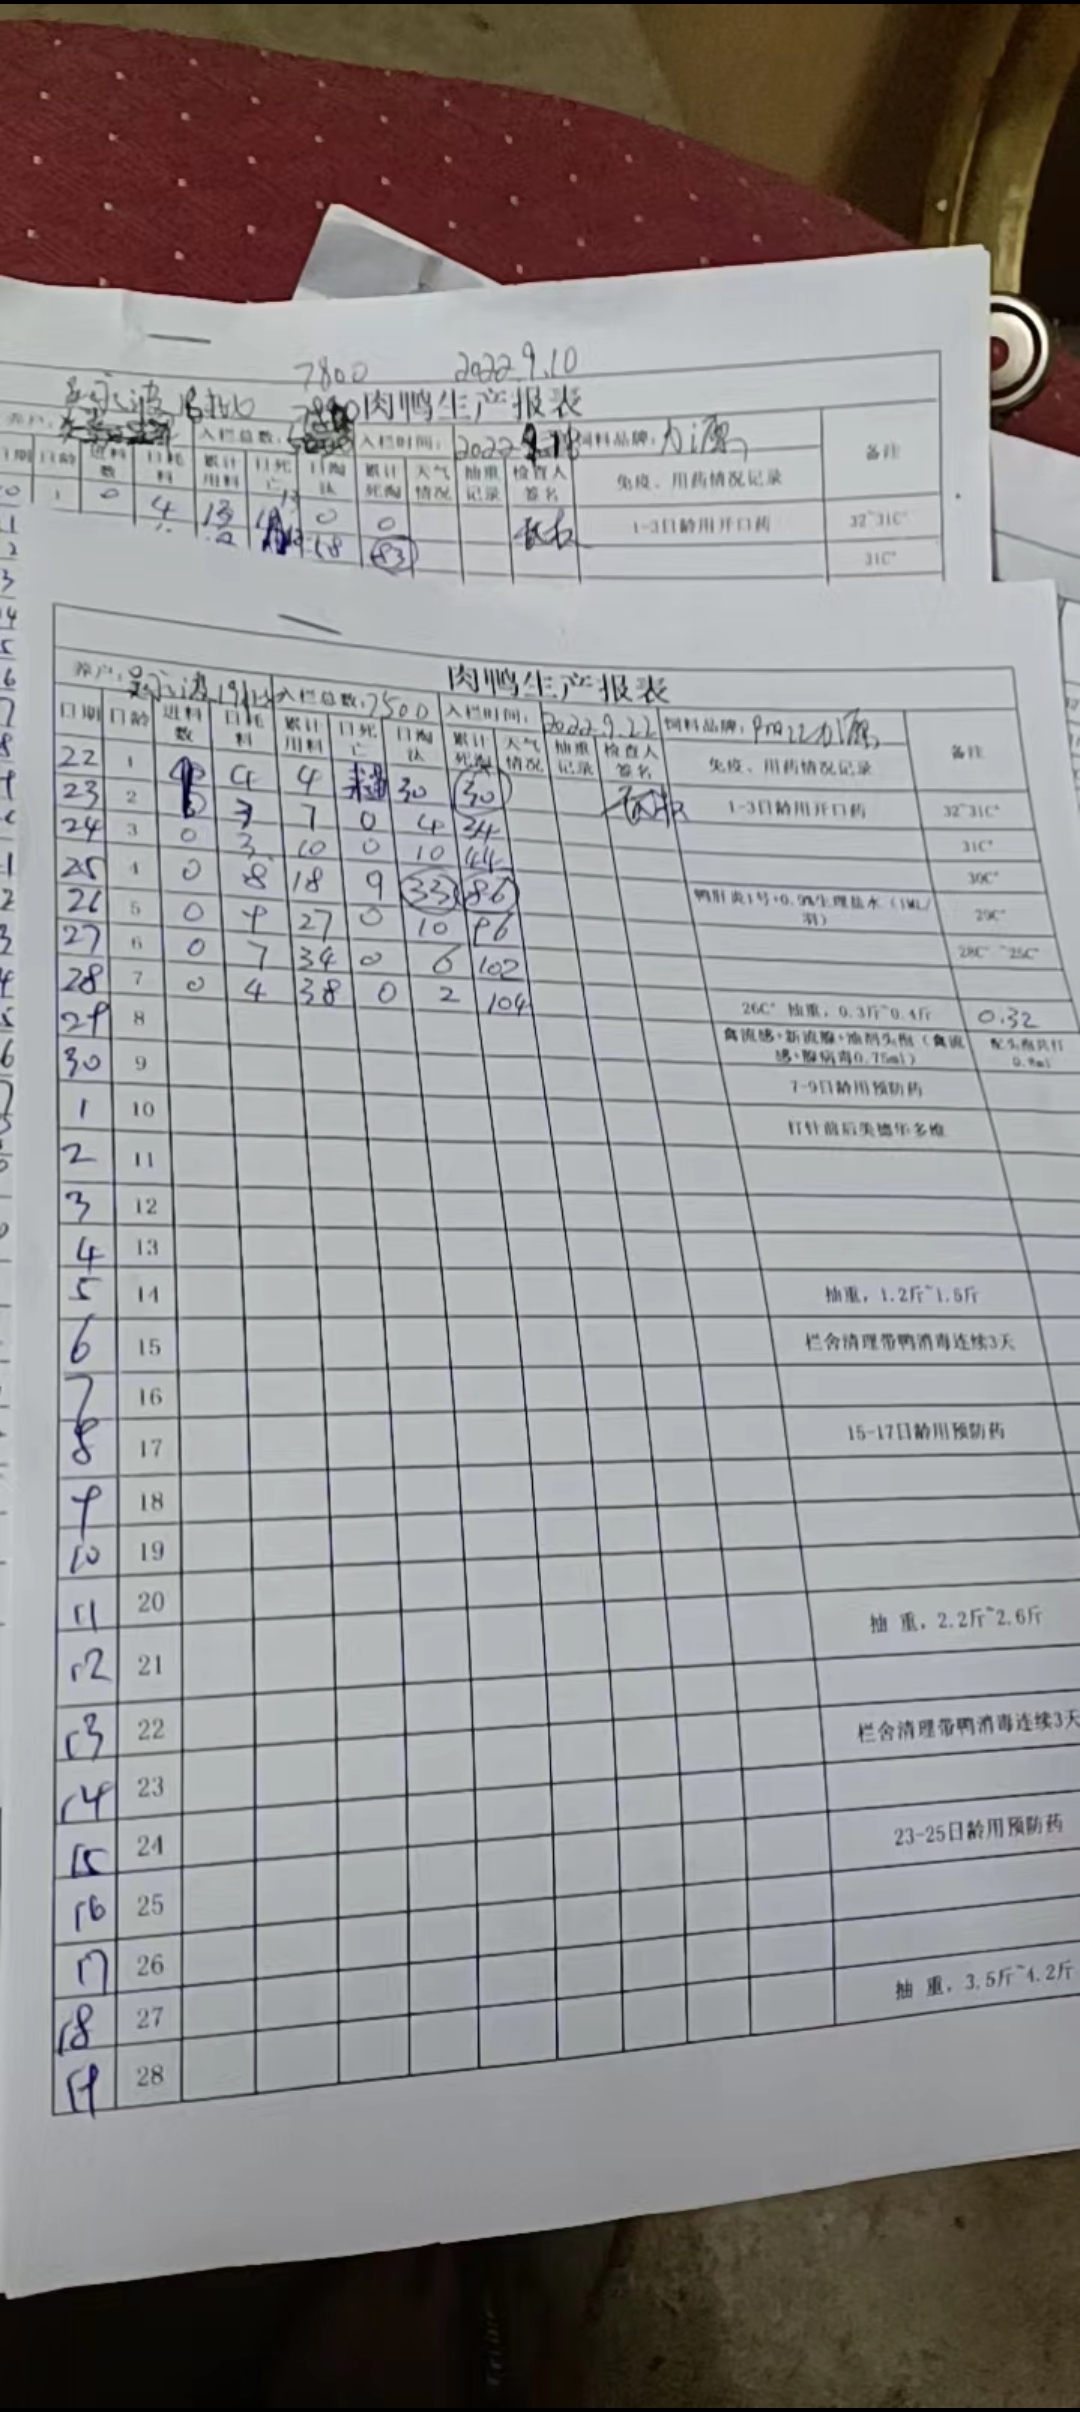 7800 2022.9.10
肉鸭生产报表
养户: 入栏总数: 入栏时间: 2022 饲料品牌: 力源 备注
日期 日龄 进料数 日耗料 累计用料 日死亡 日淘汰 累计死淘 天气情况 抽重记录 检查人签名 免疫、用药情况记录
1 0 4 13 0 0 1-3日龄用开口药 32~31C°
18 83 31C°
肉鸭生产报表
养户: 19批 入栏总数: 7500 入栏时间: 2022.9.22 饲料品牌: 力源 备注
日期 日龄 进料数 日耗料 累计用料 日死亡 日淘汰 累计死淘 天气情况 抽重记录 检查人签名 免疫、用药情况记录
22 1 4 4 30 30 1-3日龄用开口药 32~31C°
23 2 3 7 0 4 34 31C°
24 3 0 3 10 0 10 44 30C°
25 4 0 8 18 9 33 86 鸭肝炎1号+0.9%生理盐水（1ML/羽） 29C°
26 5 0 9 27 0 10 96 28C°~25C°
27 6 0 7 34 0 6 102
28 7 0 4 38 0 2 104 26C° 抽重，0.3斤~0.4斤 0.32
29 8 禽流感+新流腺+油剂头孢（禽流感+腺病毒0.75ml） 配头孢共打0.8ml
30 9 7-9日龄用预防药
1 10 打针前后美德华多维
2 11
3 12
4 13
5 14 抽重，1.2斤~1.5斤
6 15 栏舍清理带鸭消毒连续3天
7 16
8 17 15-17日龄用预防药
9 18
10 19
11 20
12 21 抽 重，2.2斤~2.6斤
13 22
14 23 栏舍清理带鸭消毒连续3天
15 24
16 25 23-25日龄用预防药
17 26
18 27
19 28 抽 重，3.5斤~4.2斤